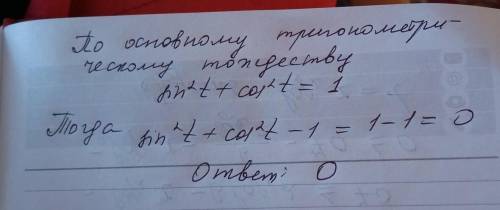 По основному тригонометри-
ческому тождеству
sin²t + cos²t = 1
Тогда sin²t + cos²t - 1 = 1 - 1 = 0
Ответ: 0